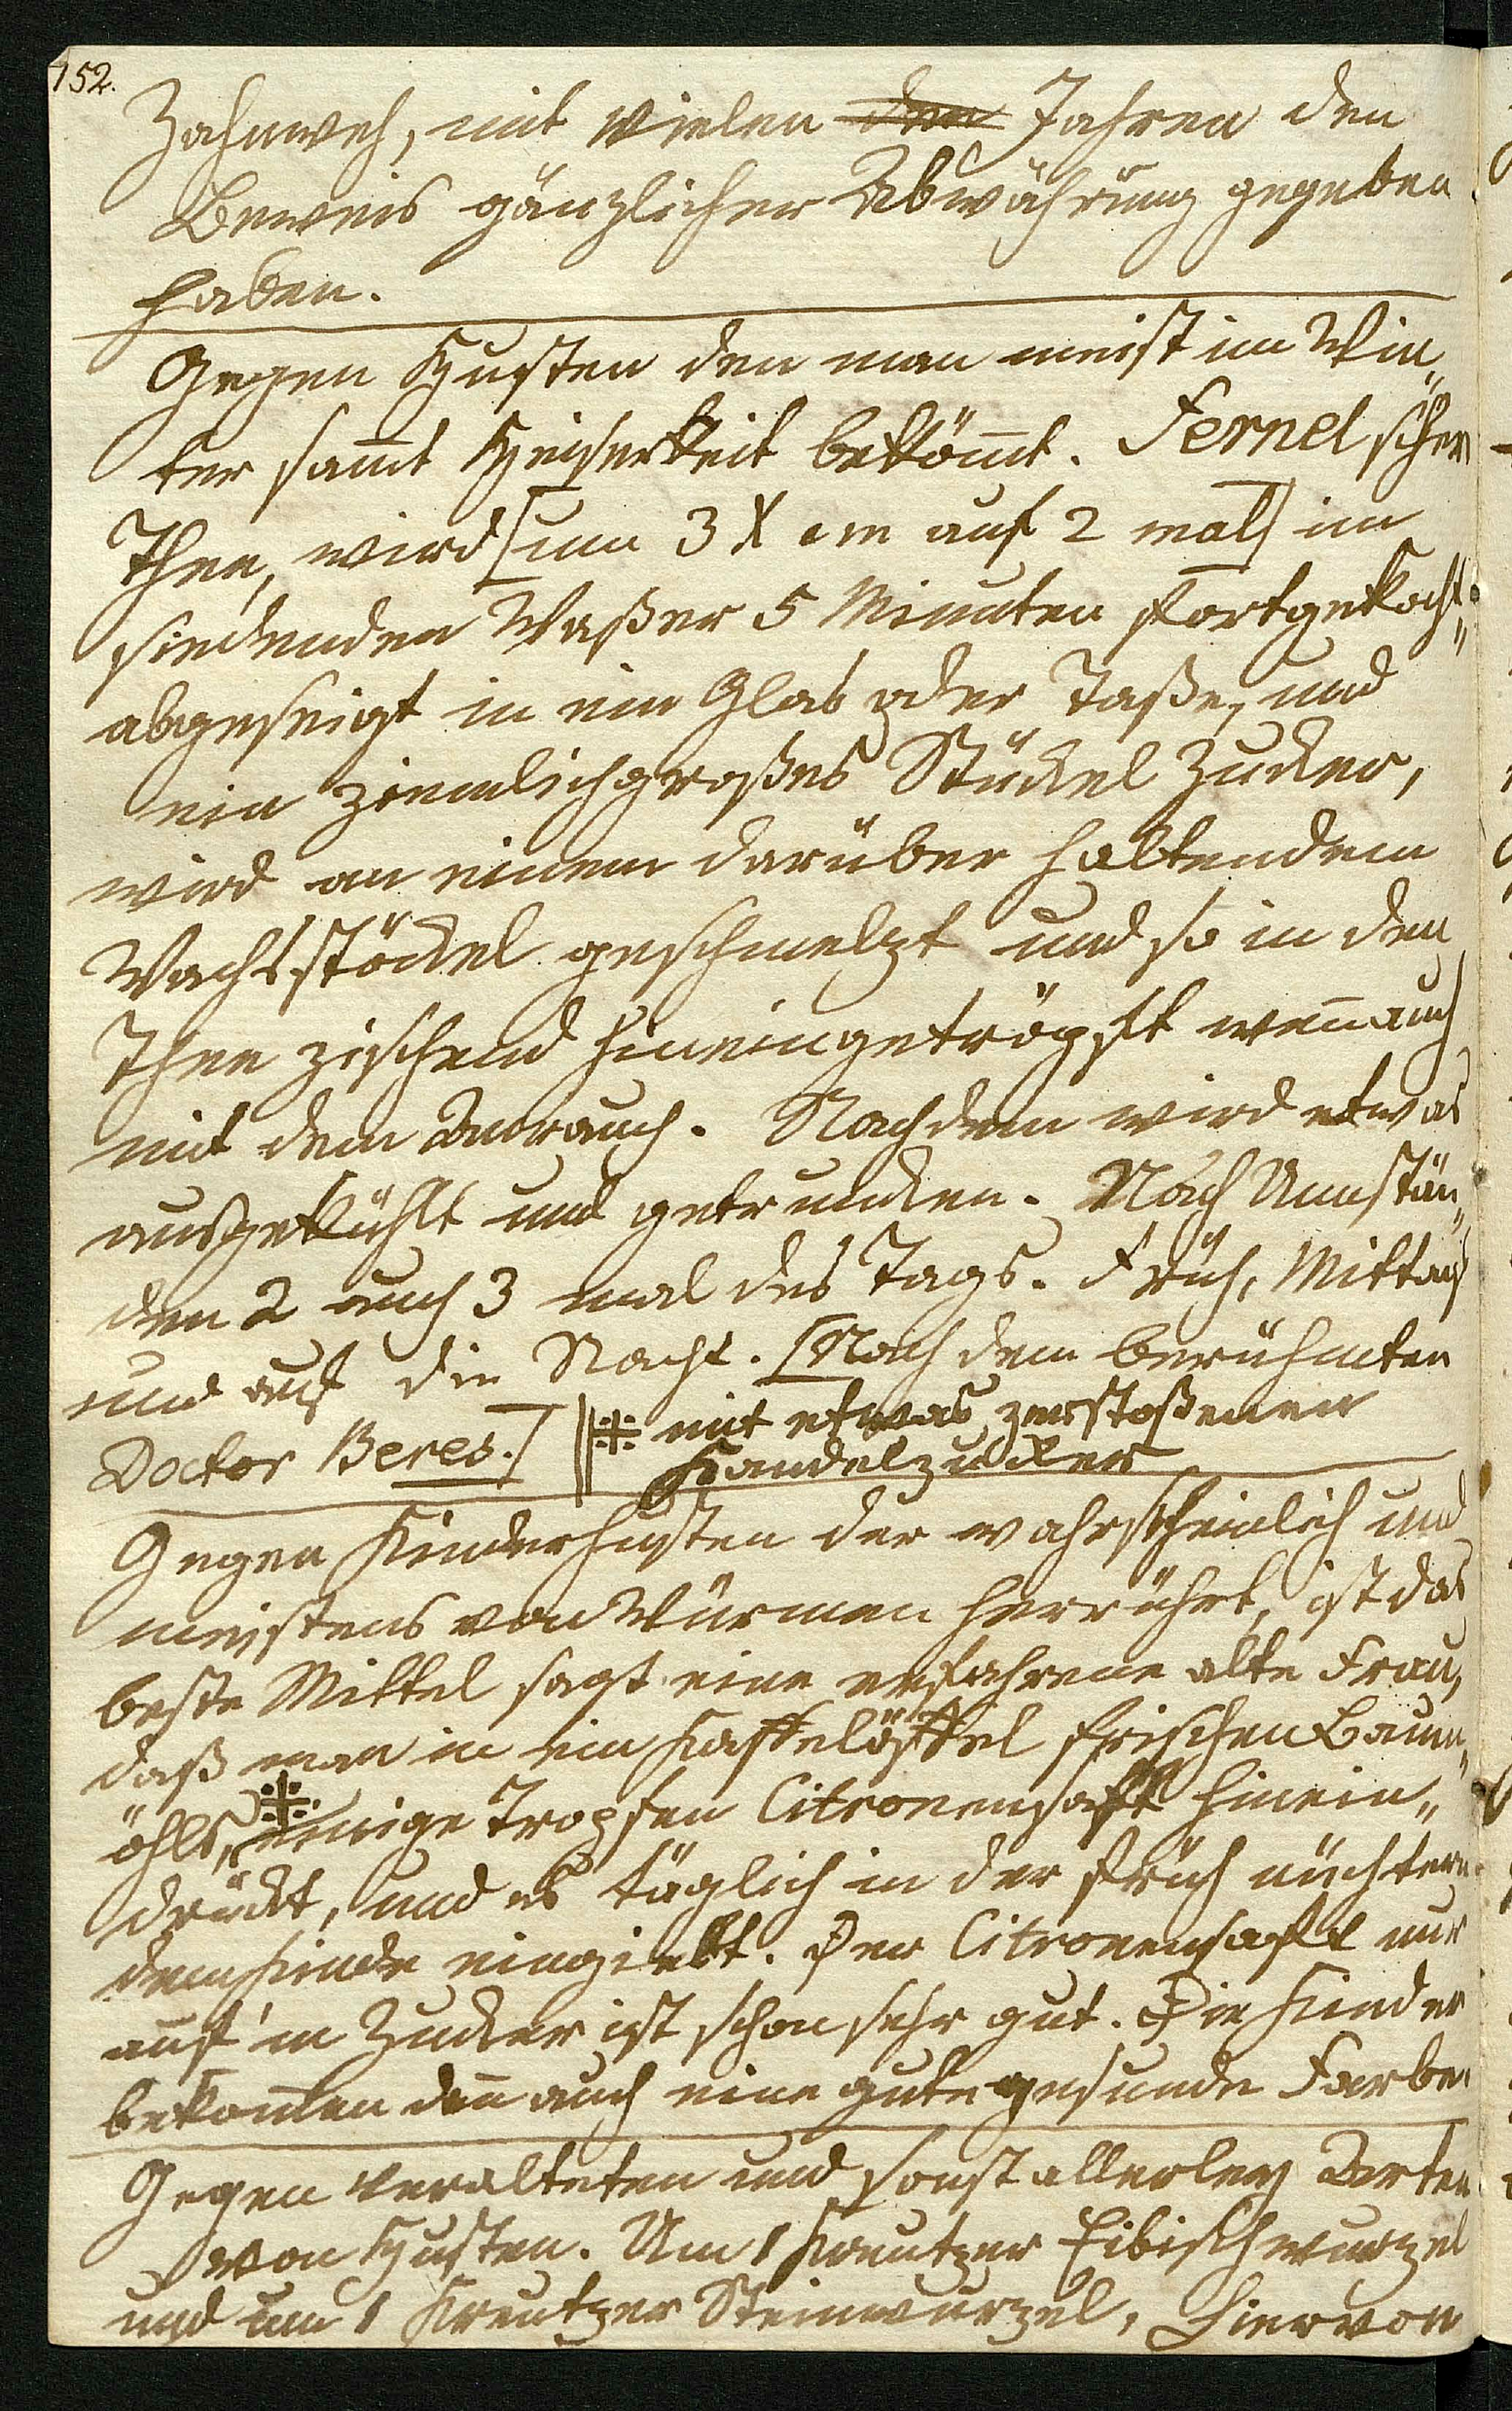 152.
Zahnweh, mit vielen den Jahren den
Beweis gänzlicher Abwährung gegeben
haben.
Gegen Husten den man meist im Win„
ter sam̅t Heiserkeit beköm̅t. Fernelschen
Thee, wird [um 3 X am auf 2 mal] im
siedenden Waßer 5 Minuten fortgekocht„
abgeseigt in ein Glas oder Taße, und
ein ziemlichgroßes Stückel Zucker,
wird an einem darüber haltendem
Wachsstöckel geschmelzt und so in den
Thee zischend hineingetröpft wen̅ auch
mit dem Anrauch. Nachdem wird etwas
ausgekühlt und getruncken. Nach Umstän„
den 2 auch 3 mal des Tags. Früh, Mittag
und auf die Nacht. [Nach dem berühmten
Doctor Beres.] ||※ mit etwas zerstoßenen
Kandelzucker
Gegen Kinderhusten der wahrscheinlich und
meistens von Würmen herrührt, ist das
beste Mittel sagt eine erfahrene alte Frau,
daß man in ein Kaffelöffel frischen Baum„
öhls, ※ einige Tropfen Citronensaft hinein„
drückt, und es täglich in der früh nüchtern
dem Kinde eingiebt. Der Citronensaft nur
auf'm Zucker ist schon sehr gut. Die Kinder
bekom̅en dan̅ auch eine gute gesunde Farbe.
Gegen veralteten und sonst allerley Arten
von Husten. Um 1 Kreutzer Eibischwurzel
und um 1 Kreutzer Steinwurzel, hiervon